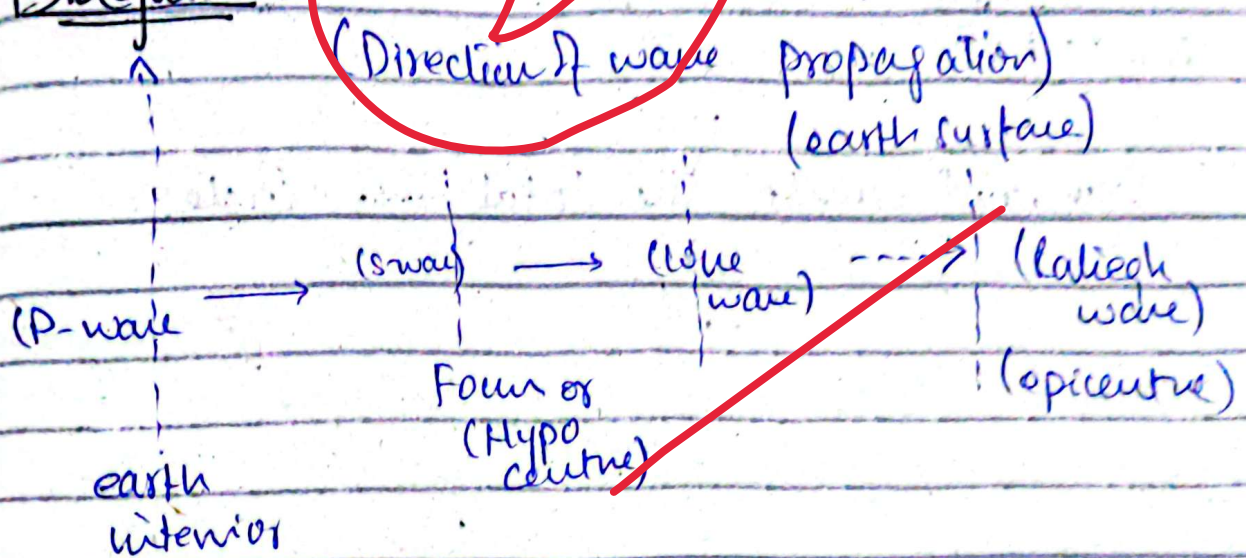 (Direction of wave propagation)
(earth surface)
(S wave) → (Love wave) ---> (Raliegh wave)
(P-wave →
Focus or (Hypo centre)
(epicentre)
earth interior